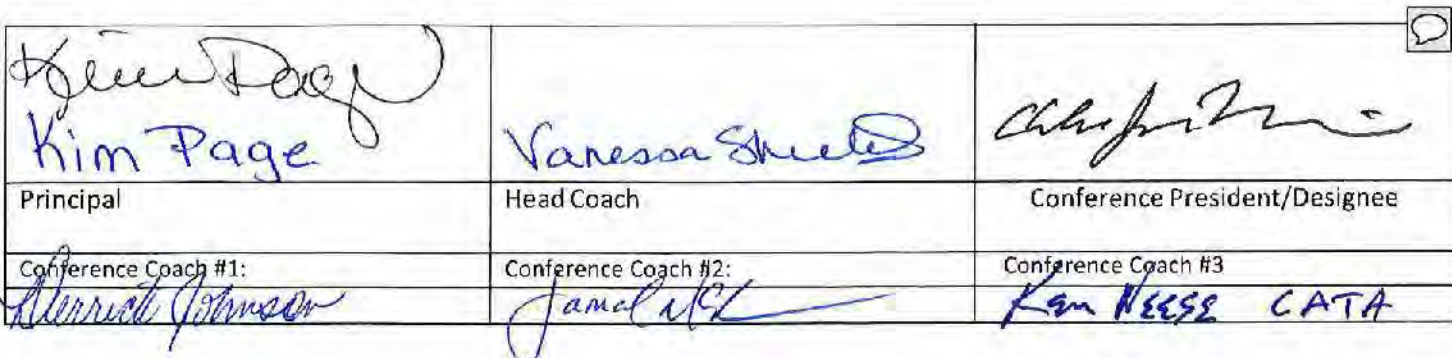 Kim Page
Kim Page
Vanessa
Principal
Head Coach
Conference President/Designee
Conference Coach #1:
Conference Coach #2:
Conference Coach #3
Derrick Johnson
Jamal
Ken Neese CATA